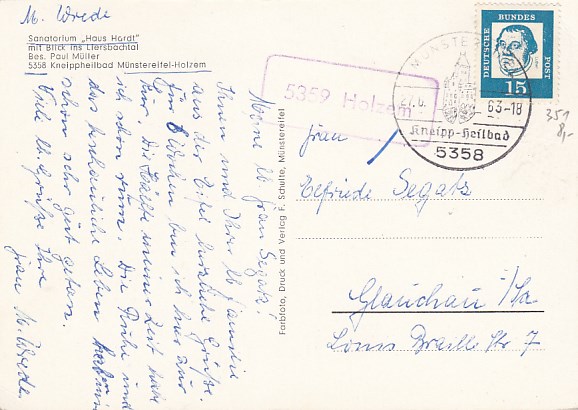 M. Wrede
Sanatorium „Haus Hardt"
mit Blick ins Liersbachtal
Bes. Paul Müller
5358 Kneippheilbad Münstereifel-Holzem
Meine lb. Frau Segatz!
Ihnen und Ihrer lb. Familie
aus der Eifel herzliche Grüße.
Für 4 Wochen bin ich hier zur
Kur. Die Hälfte meiner Zeit habe
ich schon rum. Die Ruhe und
das beschauliche Leben
schon sehr gut getan.
Viele lb. Grüße Ihre
Frau M. Wrede.
Farbfoto, Druck und Verlag F. Schulte, Münstereifel
5359 Holzem
MÜNSTER
6.63-18
Kneipp-Heilbad
5358
DEUTSCHE BUNDESPOST
15
351
8,-
Frau
Elfriede Segatz
Glauchau i/Sa
Louis Braille Str 7